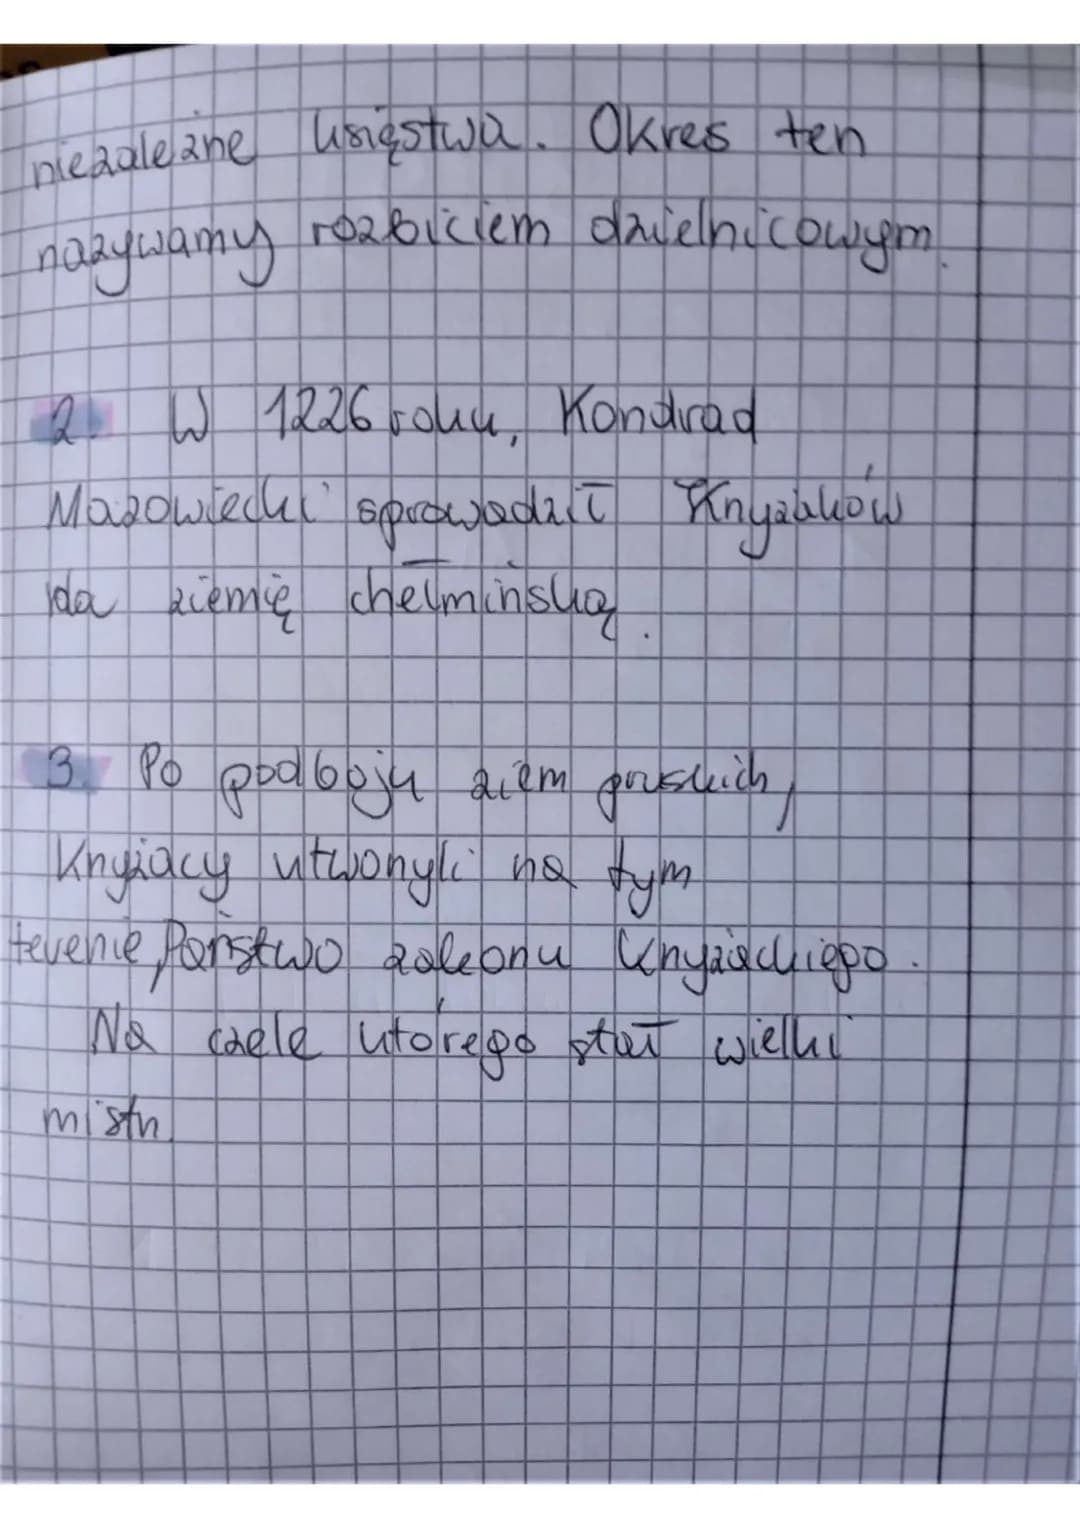 niezależne księstwa. Okres ten
nazywamy rozbiciem dzielnicowym.
2. W 1226 roku, Kondrad
Mazowiecki sprowadził Krzyżaków
da ziemię chełmińską.
3. Po podboju ziem pruskich,
Krzyżacy utworzyli na tym
terenie, Państwo zakonu Krzyżackiego.
Na czele którego stał wielki
mistrz.